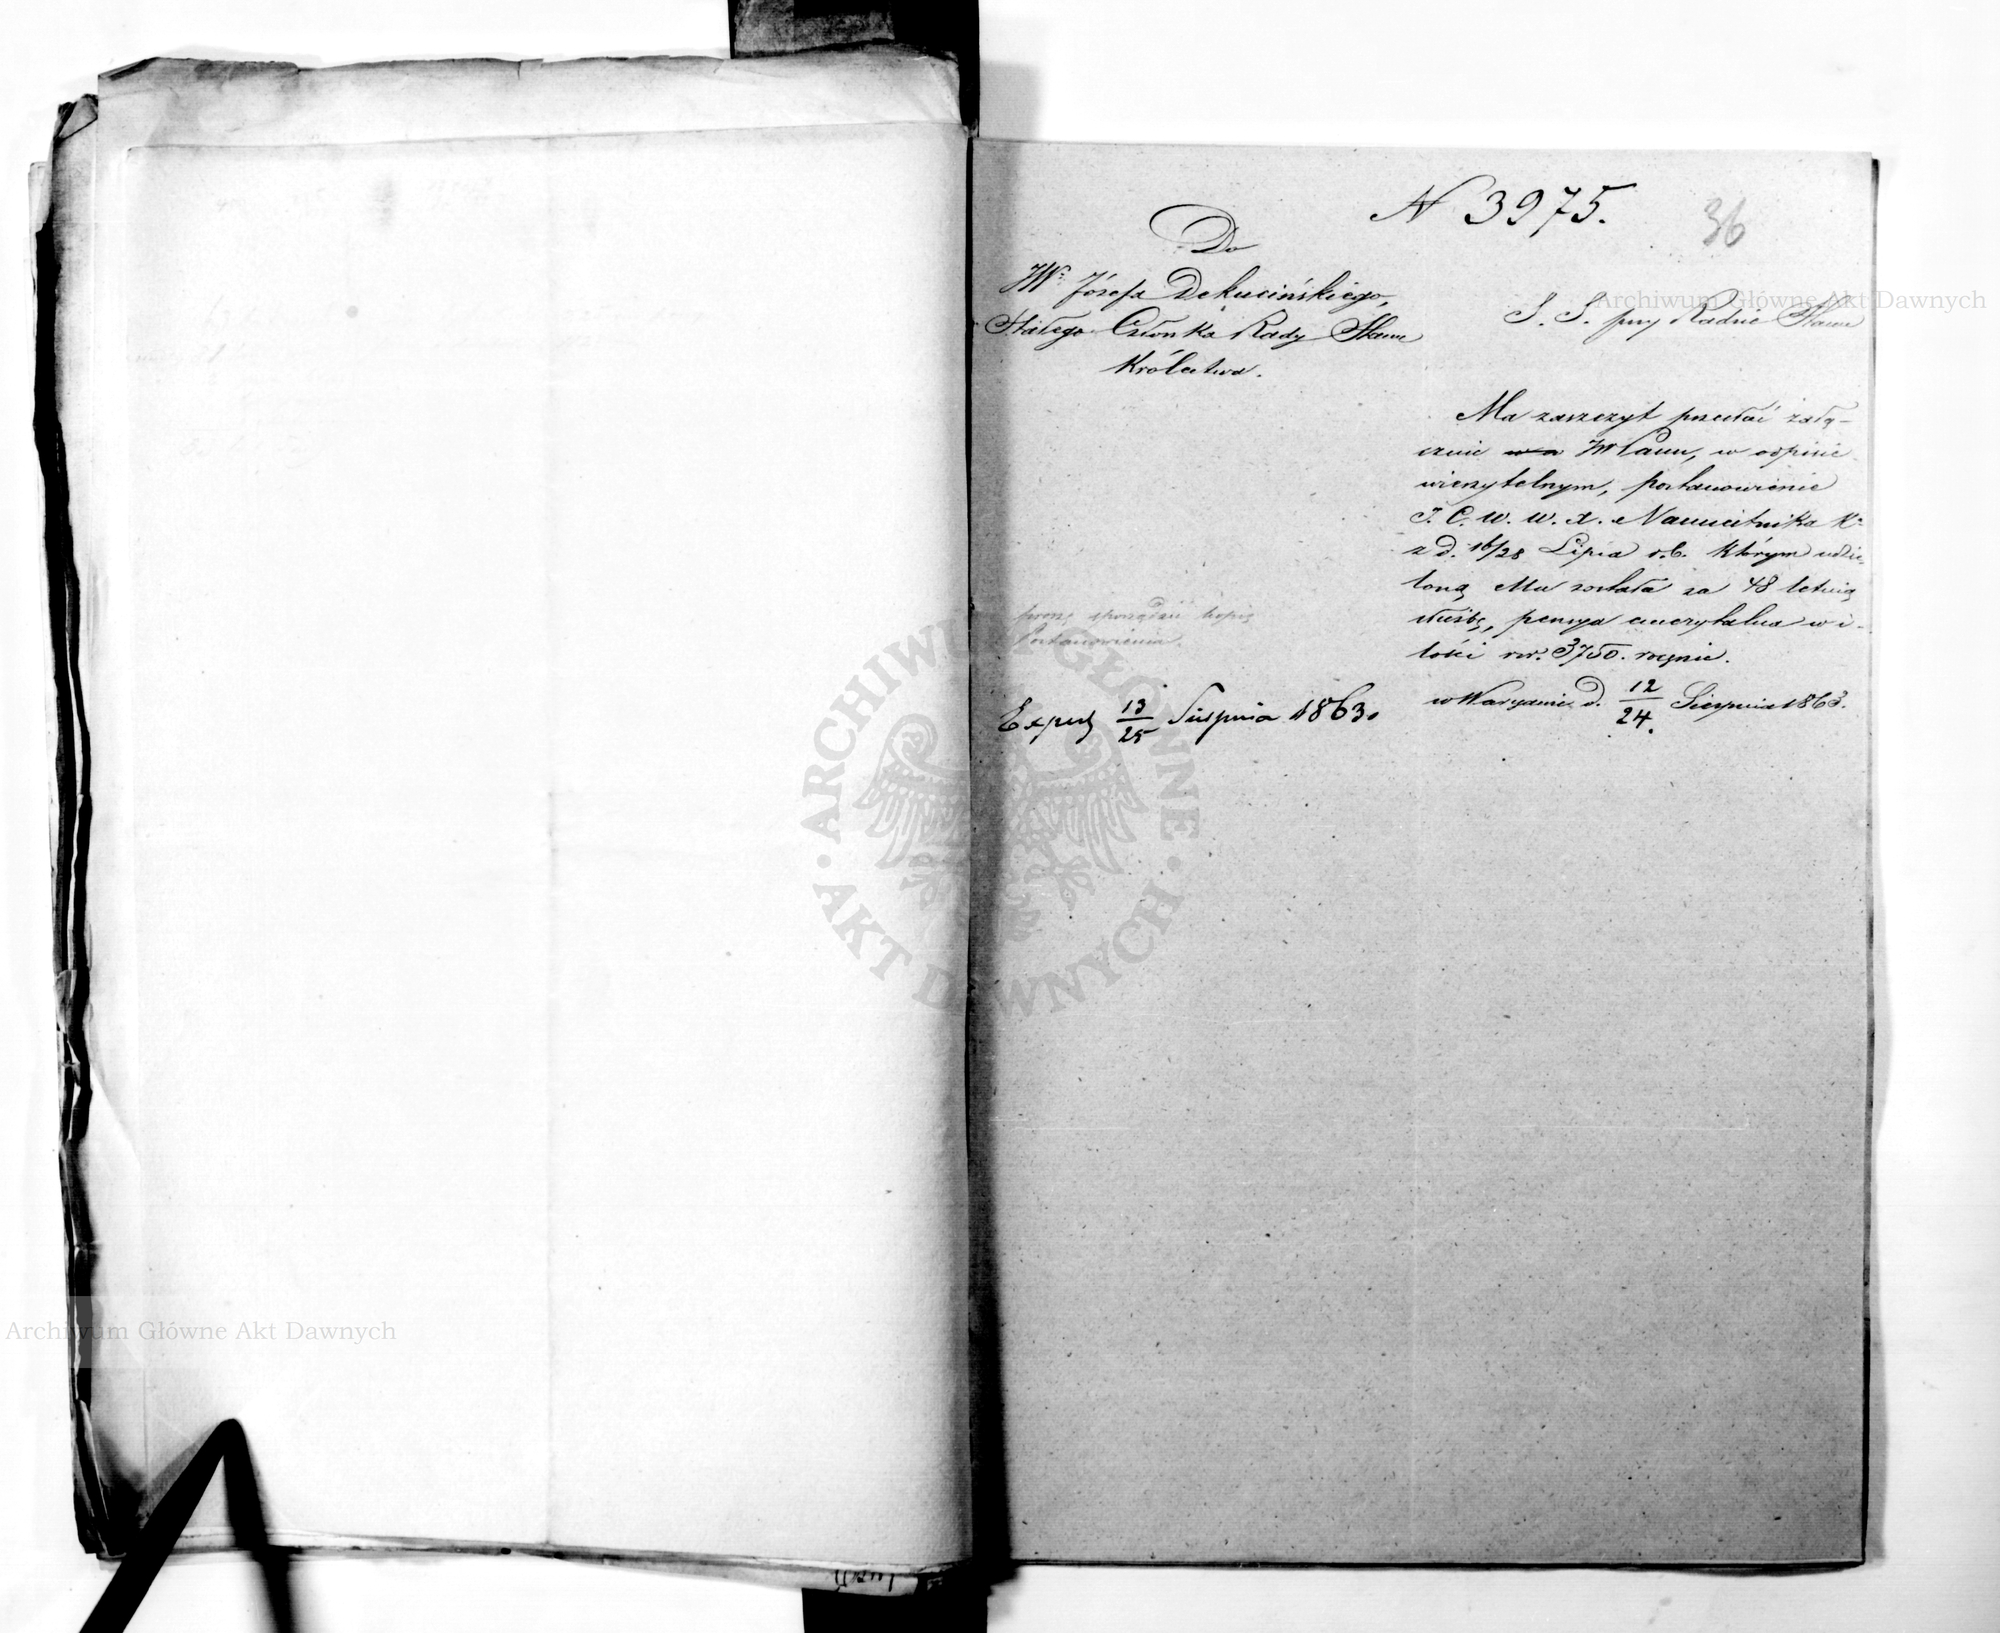 N 3975.
36
Do
JW. Józefa Dekucińskiego,
Stałego Członka Rady Stanu
Królestwa.
S. S. przy Radzie Stanu
Ma zaszczyt przesłać załą-
cznie JWPanu, w odpisie
wierzytelnym, postanowienie
J. C. W. W. X. Namiestnika K.
z d. 16/28 Lipca r.b. którym udzie-
loną Mu została za 48 letnią
służbę, pensya emerytalna w i-
lości rsr. 3750. rocznie.
w Warszawie d. 12/24. Sierpnia 1863.
proszę sporządzić kopię
Postanowienia.
Exped 13/25 Sierpnia 1863.
Archiwum Główne Akt Dawnych
Archiwum Główne Akt Dawnych
ARCHIWUM GŁÓWNE · AKT DAWNYCH ·